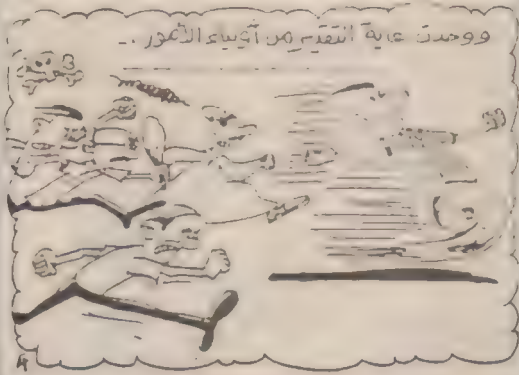 ووجدت غاية التقدير من أولياء الأمور ..